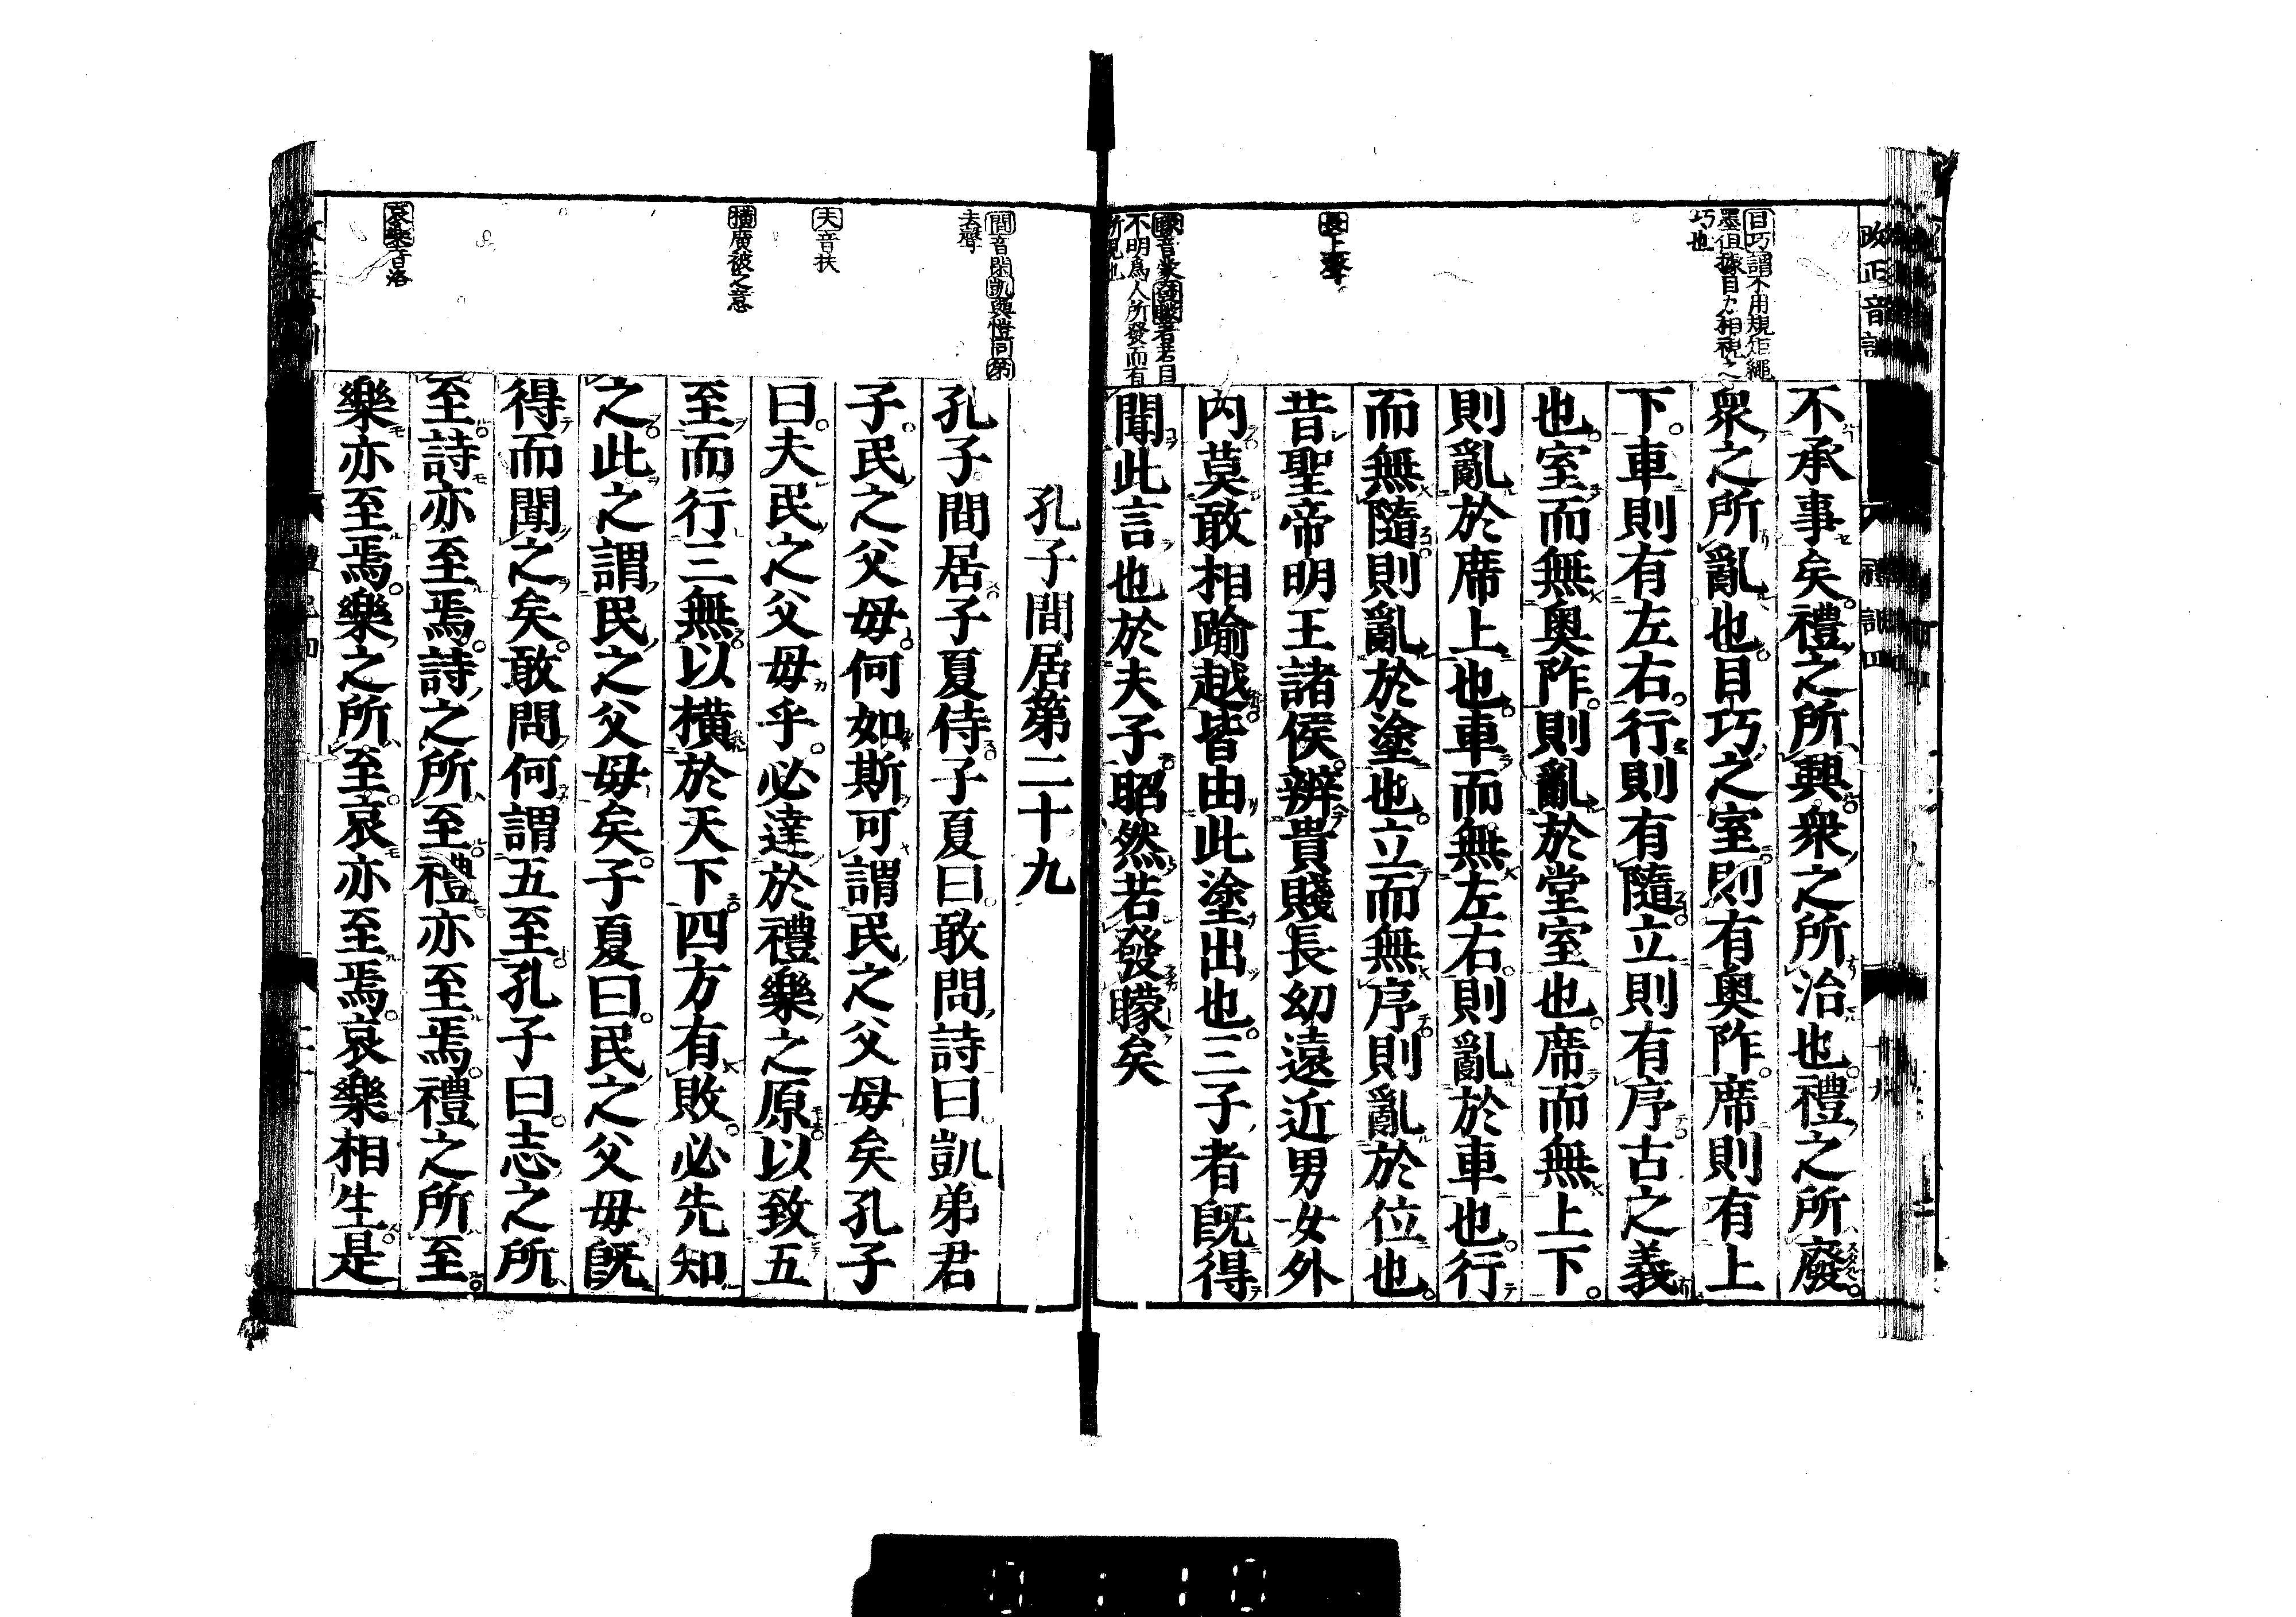 改正音訓
禮記四
十九
目巧謂不用規矩繩
墨但據目力相視之
巧也
長上聲
矇音蒙發矇者若目
不明爲人所發而有
所見也
不承事矣禮之所興衆之所治也禮之所廢
衆之所亂也目巧之室則有奧阼席則有上
下車則有左右行則有隨立則有序古之義
也室而無奧阼則亂於堂室也席而無上下
則亂於席上也車而無左右則亂於車也行
而無隨則亂於塗也立而無序則亂於位也
昔聖帝明王諸侯辨貴賤長幼遠近男女外
內莫敢相踰越皆由此塗出也三子者旣得
聞此言也於夫子昭然若發矇矣
間音閑凱與愷同弟
去聲
夫音扶
橫廣被之意
哀樂音洛
孔子間居第二十九
孔子間居子夏侍子夏曰敢問詩曰凱弟君
子民之父母何如斯可謂民之父母矣孔子
曰夫民之父母乎必達於禮樂之原以致五
至而行三無以橫於天下四方有敗必先知
之此之謂民之父母矣子夏曰民之父母旣
得而聞之矣敢問何謂五至孔子曰志之所
至詩亦至焉詩之所至禮亦至焉禮之所至
樂亦至焉樂之所至哀亦至焉哀樂相生是